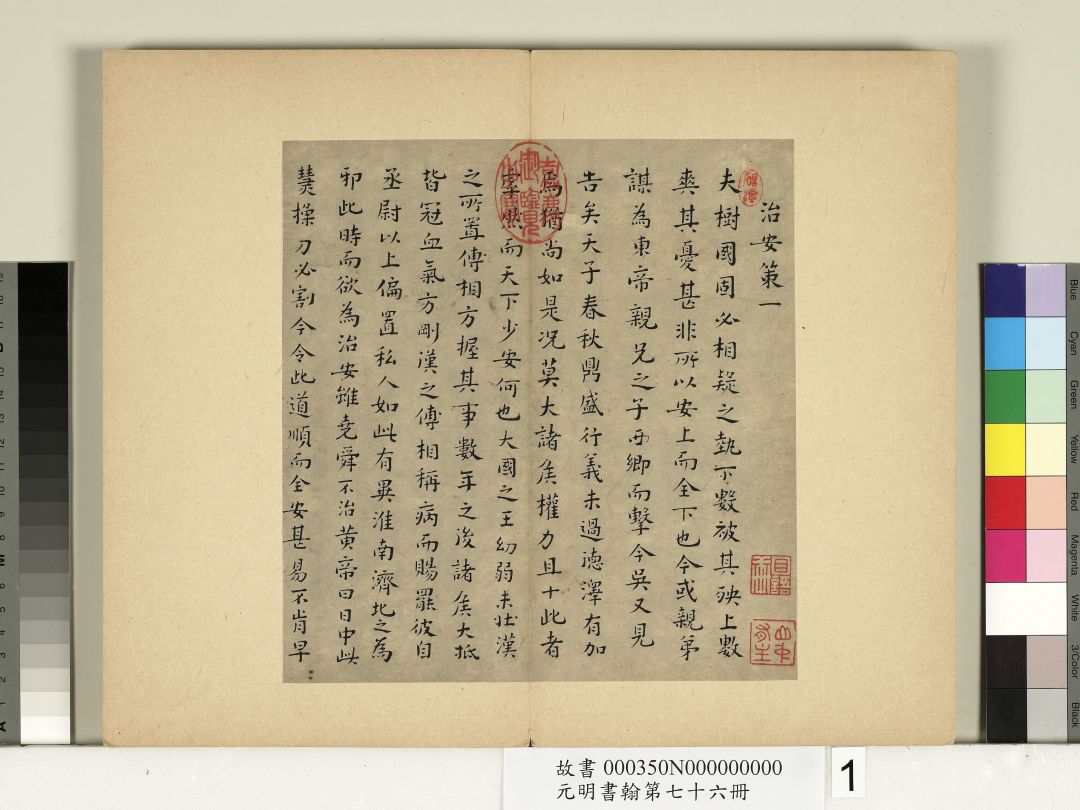 治安策一
夫樹國固必相疑之埶下數被其殃上數
爽其憂甚非所以安上而全下也今或親弟
謀為東帝親兄之子西鄉而擊今吳又見
告矣天子春秋鼎盛行義未過德澤有加
焉猶尚如是況莫大諸侯權力且十此者
虖然而天下少安何也大國之王幼弱未壯漢
之所置傅相方握其事數年之後諸侯大抵
皆冠血氣方剛漢之傅相稱病而賜罷彼自
丞尉以上偏置私人如此有異淮南濟北之為
邪此時而欲為治安雖堯舜不治黃帝曰日中必
熭操刀必割今令此道順而全安甚易不肯早
故書 000350N000000000
元明書翰第七十六冊
1
Blue
Cyan
Green
Yellow
Red
Magenta
White
3/Color
Black